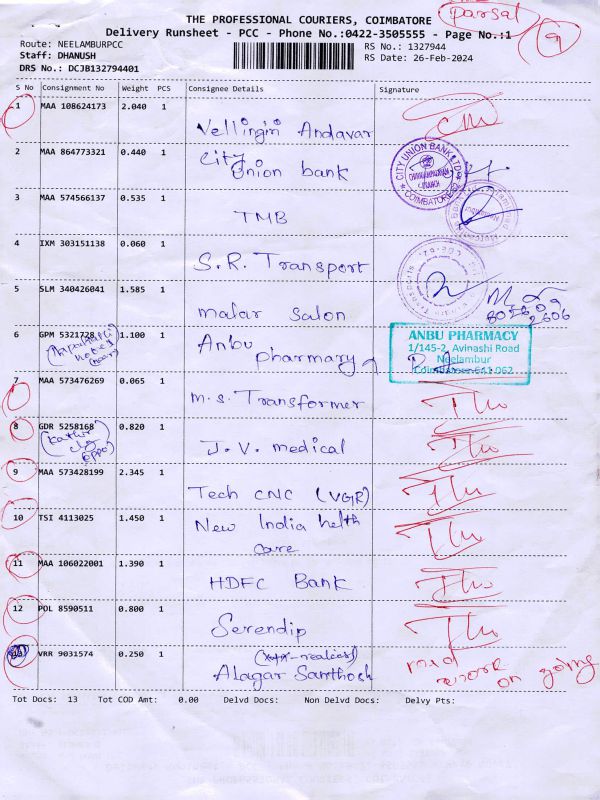 Parsal
THE PROFESSIONAL COURIERS, COIMBATORE
9
Delivery Runsheet - PCC - Phone No.:0422-3505555 - Page No.:1
Route: NEELAMBURPCC RS No.: 1327944
Staff: DHANUSH RS Date: 26-Feb-2024
DRS No.: DCJB132794401
S No Consignment No Weight PCS Consignee Details Signature
1 MAA 108624173 2.040 1 Vellingiri Andavar
2 MAA 864773321 0.440 1 City Union bank
CITY UNION BANK LTD
COIMBATORE
3 MAA 574566137 0.535 1 TMB
4 IXM 303151138 0.060 1 S.R. Transport
5 SLM 340426041 1.585 1 malar salon
6 GPM 5321728 1.100 1 Anbu pharmary
ANBU PHARMACY
1/145-2, Avinashi Road
Neelambur
Coimbatore-641 062
7 MAA 573476269 0.065 1 m.s. Transformer
8 GDR 5258168 0.820 1 J.V. medical
9 MAA 573428199 2.345 1 Tech CNC (VGR)
10 TSI 4113025 1.450 1 New India helth care
11 MAA 106022001 1.390 1 HDFC Bank
12 POL 8590511 0.800 1 Serendip
13 VRR 9031574 0.250 1 Alagar Santhosh
road work on going
Tot Docs: 13 Tot COD Amt: 0.00 Delvd Docs: Non Delvd Docs: Delvy Pts: